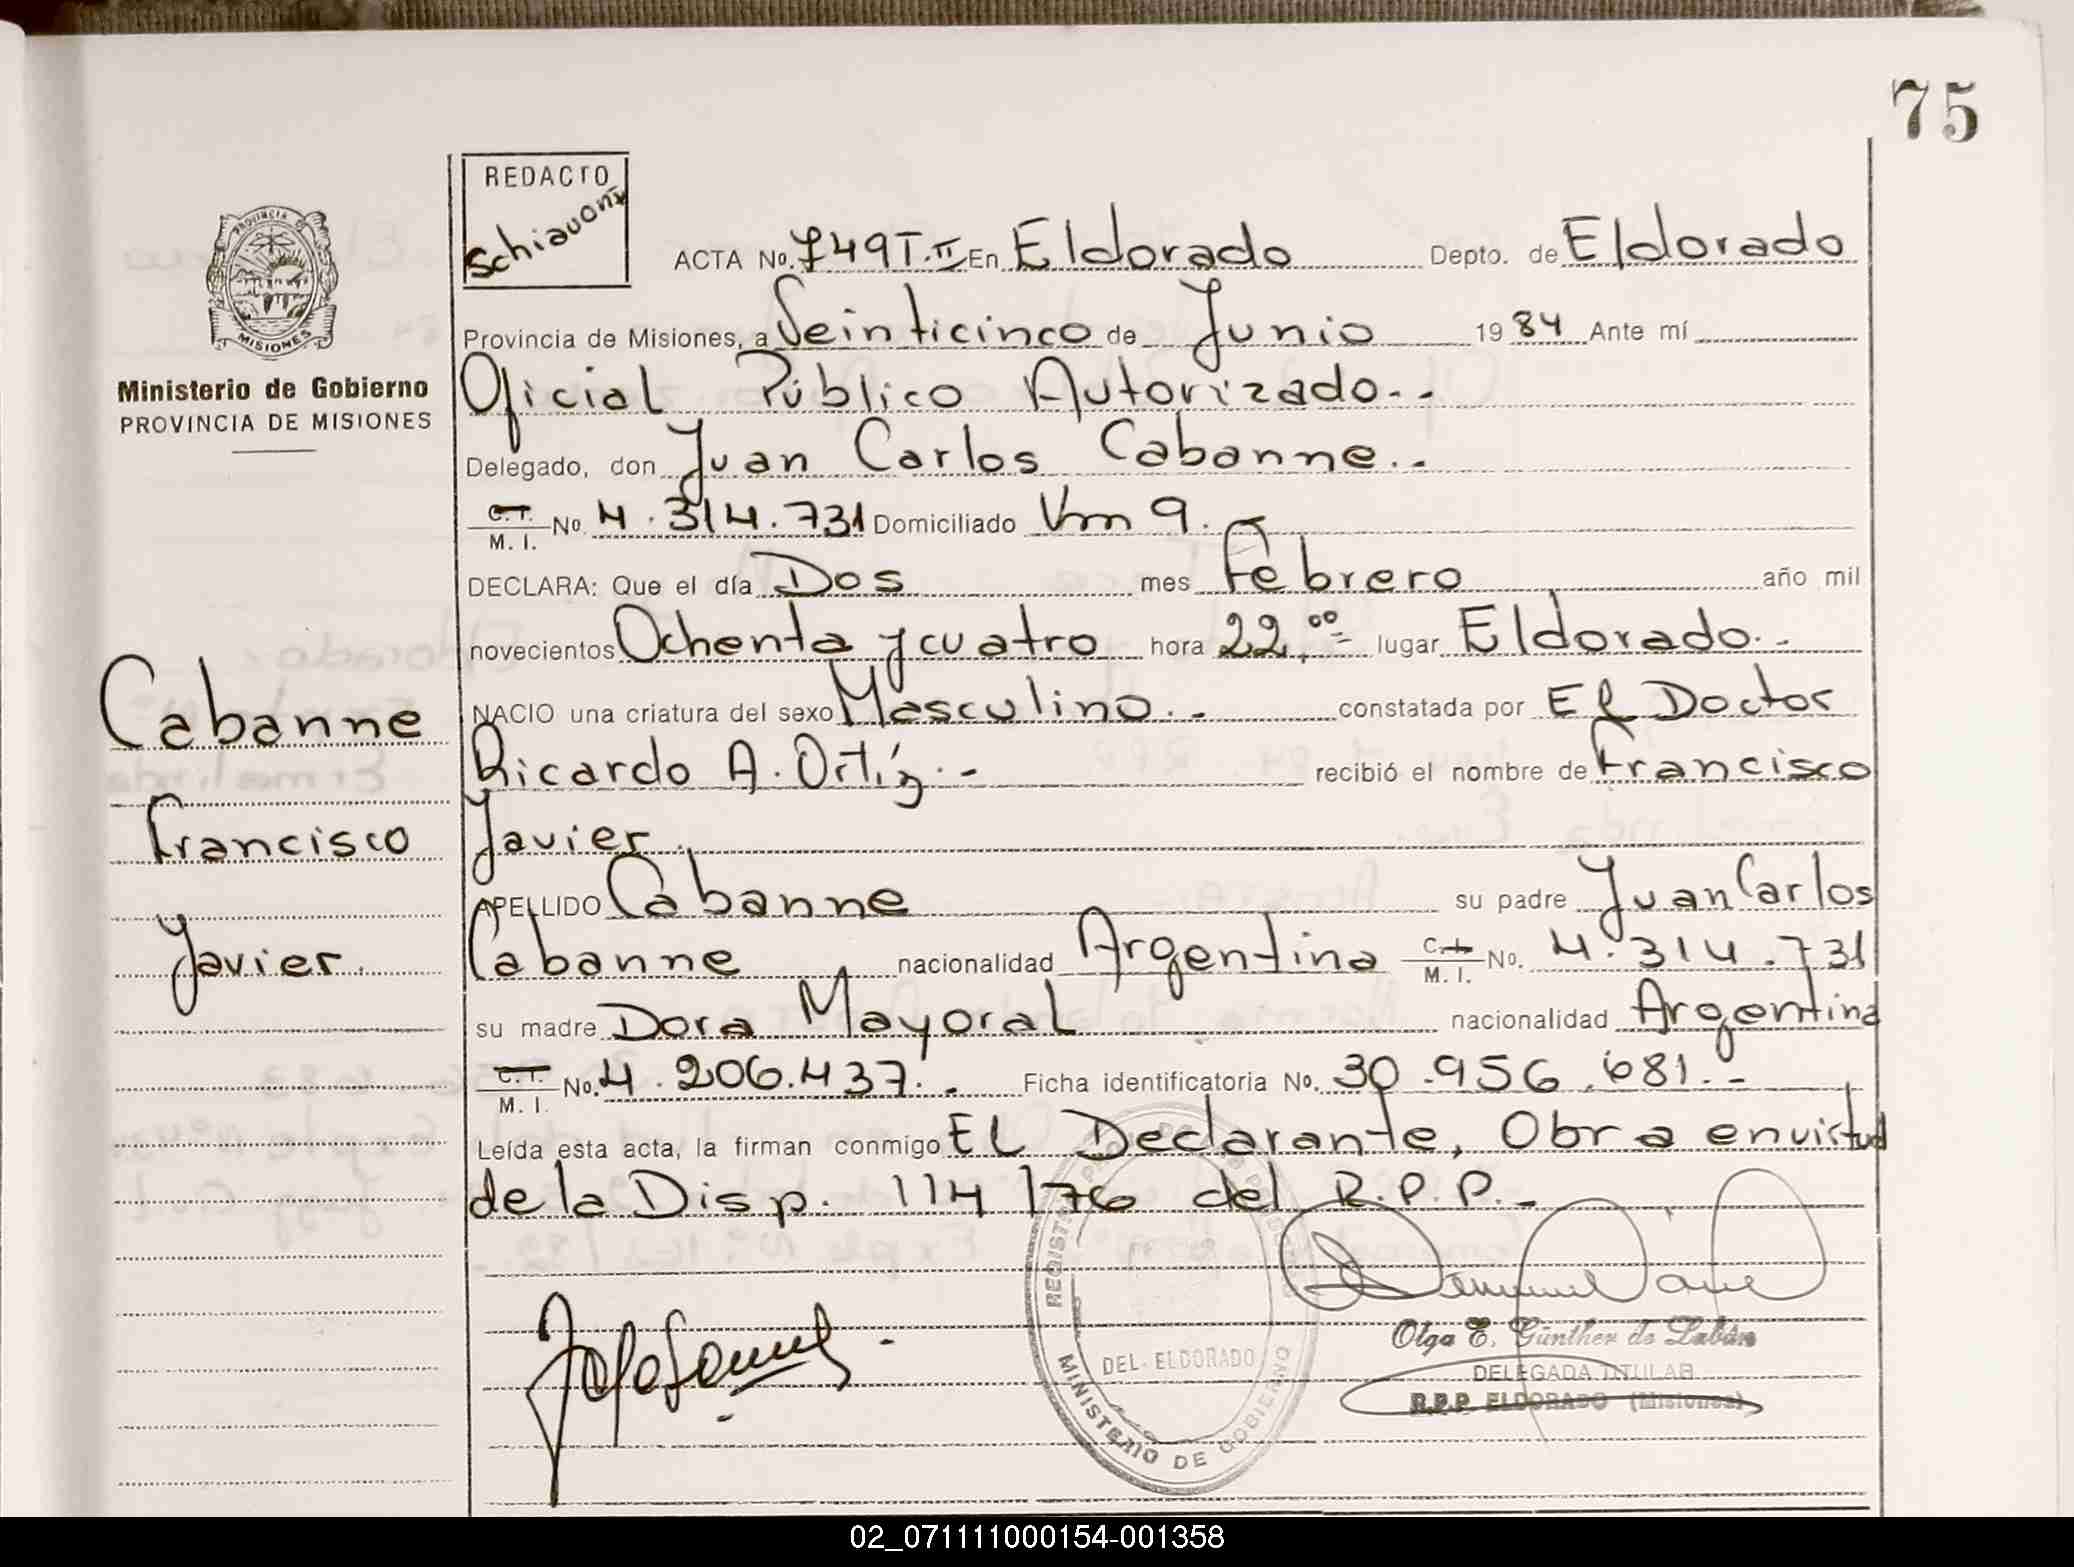 75
REDACTO
Schiavoni
ACTA No. 749 T. II En Eldorado Depto. de Eldorado
Provincia de Misiones, a Veinticinco de Junio 1984 Ante mí
Oficial Público Autorizado.-
Delegado, don Juan Carlos Cabanne.-
C.I. M. I. No. 4.314.731 Domiciliado Km 9.-
DECLARA: Que el día Dos mes Febrero año mil
novecientos Ochenta y cuatro hora 22,00= lugar Eldorado.-
NACIO una criatura del sexo Masculino.- constatada por El Doctor
Ricardo A. Ortíz.- recibió el nombre de Francisco
Javier.
APELLIDO Cabanne su padre Juan Carlos
Cabanne nacionalidad Argentina C.I. M. I. No. 4.314.731
su madre Dora Mayoral nacionalidad Argentina
C.I. M. I. No. 4.206.437.- Ficha identificatoria No. 30.956.681.-
Leída esta acta, la firman conmigo El Declarante, Obra en virtud
de la Disp. 114/76 del R.P.P.-
PROVINCIA
MISIONES
Ministerio de Gobierno
PROVINCIA DE MISIONES
Cabanne
Francisco
Javier.
DEL. ELDORADO
MINISTERIO DE GOBIERNO
Olga E. Günther de Labán
DELEGADA TITULAR
R.P.P. ELDORADO (Misiones)
02_071111000154-001358